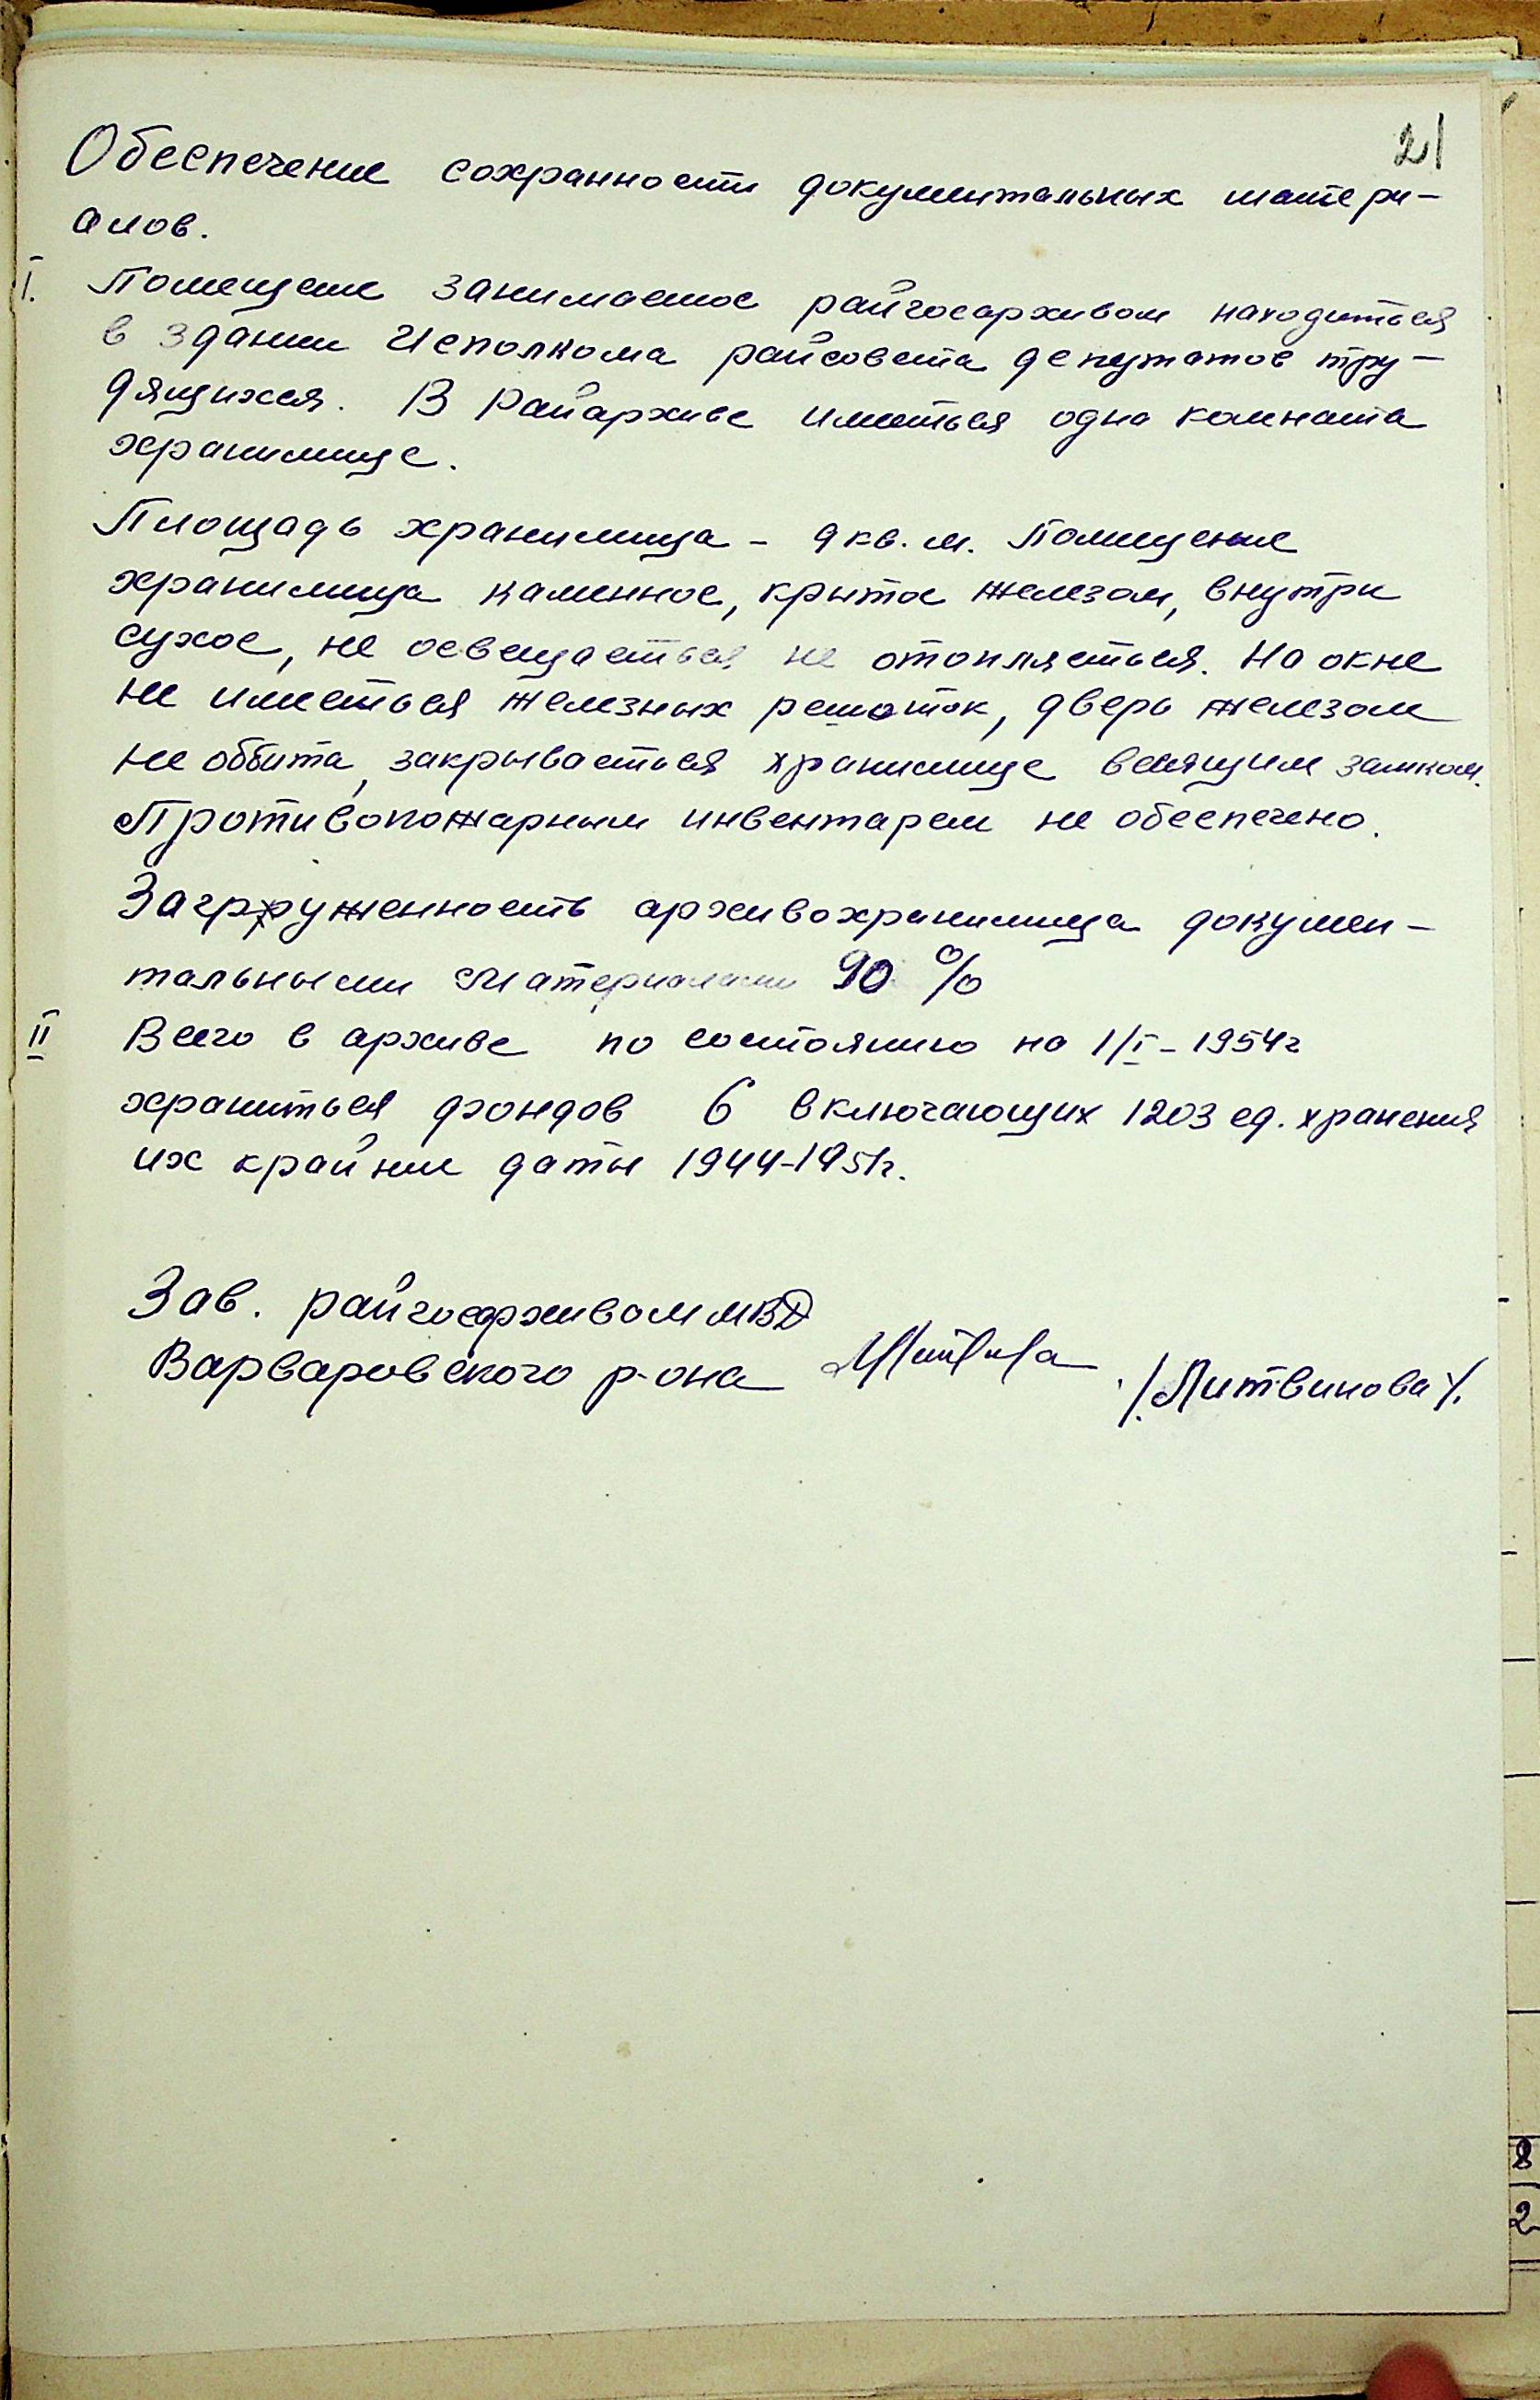 21
Обеспечение сохранности документальных матери-
алов.
I. Помещение занимаемое райгосархивом находиться
в здании Исполкома райсовета депутатов тру-
дящихся. В Райархиве иметься одна комната
хранилище.
Площадь хранилища - 9 кв. м. Помещение
хранилища каменное, крытое железом, внутри
сухое, не освещаеться не отопляеться. На окне
не имееться железных решоток, дверь железом
не оббита, закрываеться хранилище висящим замком.
Противопожарным инвентарем не обеспечено.
Загруженность архивохранилища докумен-
тальными материалами 90 %
II Всего в архиве по состоянию на 1/I - 1954г
храниться фондов 6 включающих 1203 ед. хранения
их крайние даты 1944-1951г.
Зав. райгосархивом МВД
Варваровского р-она /Литвинова/.
8
2